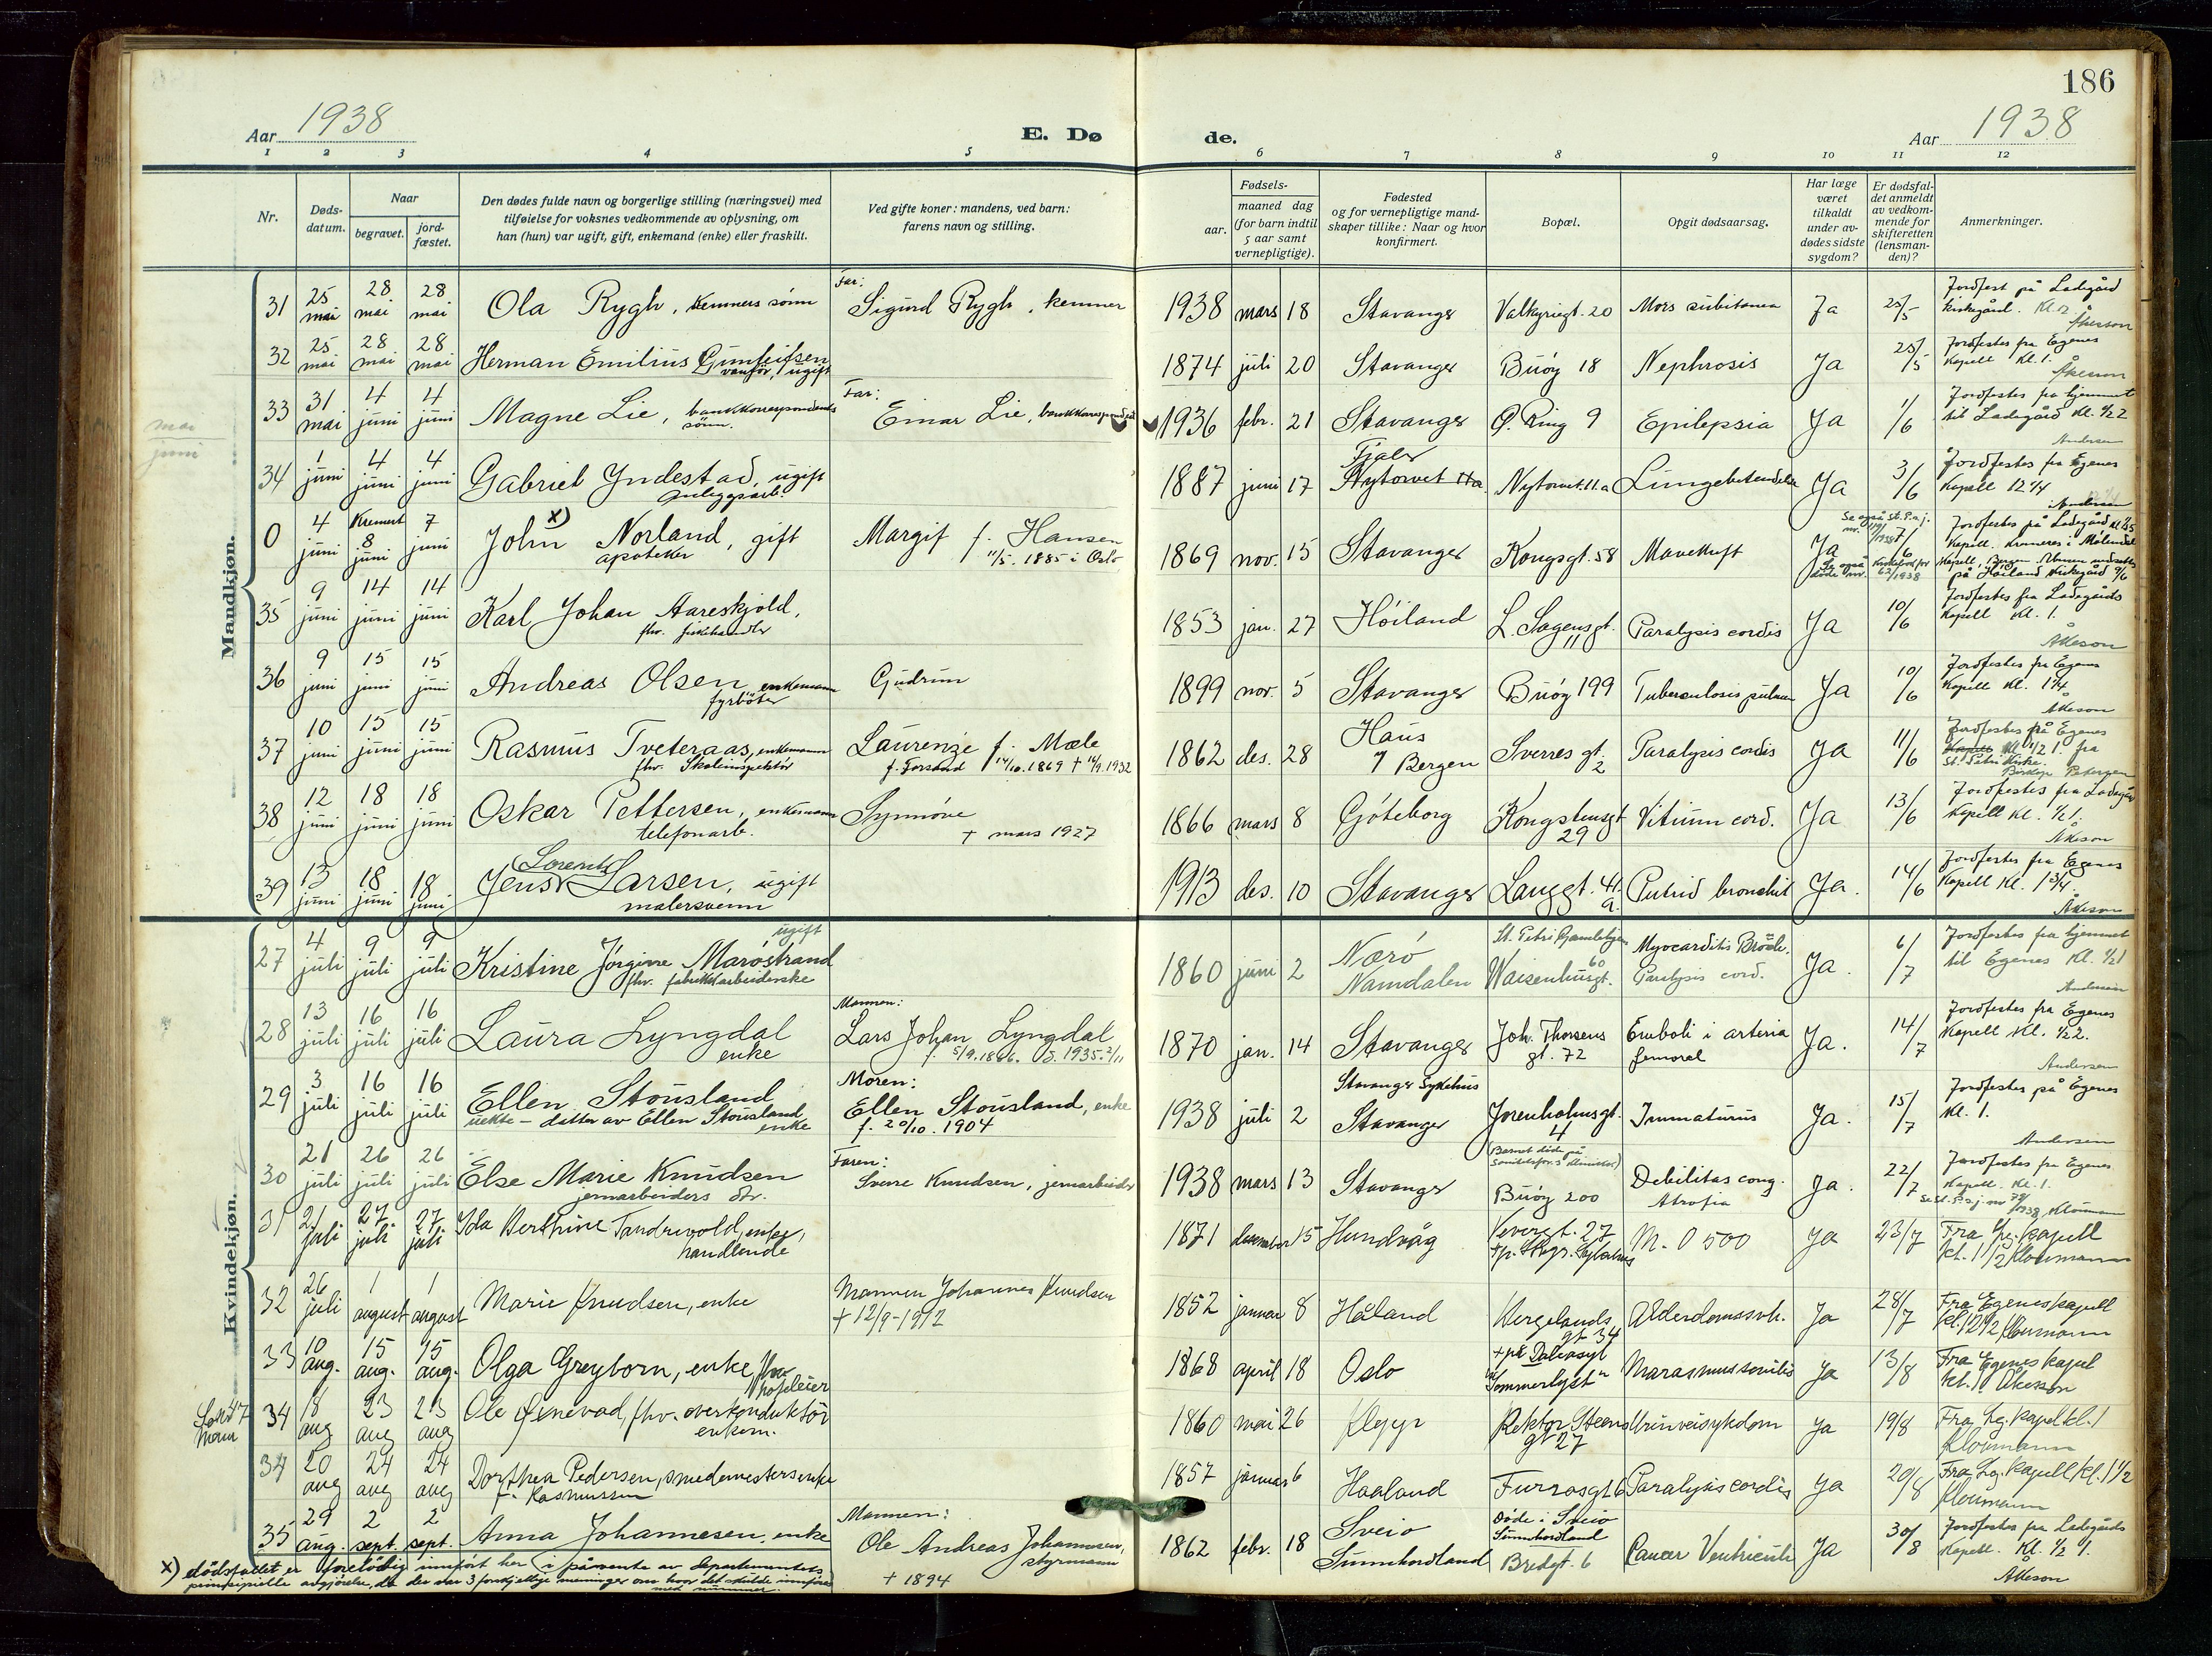 186
Aar 1938
E. Dø
de.
Aar 1938
1 2 3 4 5 6 7 8 9 10 11 12
Nr.
Døds-
datum.
Naar
begravet.
jord-
fæstet.
Den dødes fulde navn og borgerlige stilling (næringsvei) med
tilføielse for voksnes vedkommende av oplysning, om
han (hun) var ugift, gift, enkemand (enke) eller fraskilt.
Ved gifte koner: mandens, ved barn:
farens navn og stilling.
Fødsels-
aar.
maaned dag
(for barn indtil
5 aar samt
vernepligtige).
Fødested
og for vernepligtige mand-
skaper tillike: Naar og hvor
konfirmert.
Bopæl.
Opgit dødsaarsag.
Har læge
været
tilkaldt
under av-
dødes sidste
sygdom?
Er dødsfal-
det anmeldt
av vedkom-
mende for
skifteretten
(lensman-
den)?
Anmerkninger.
Mandkjøn.
mai
juni
31 25 mai 28 mai 28 mai Ola Rygh, kemners sønn Far: Sigurd Rygh, kemner 1938 mars 18 Stavanger Valkyriegt. 20 Mors subitanea Ja 25/5 Jordfest på Ladegård kirkegård. Kl. 2 Åkeson
32 25 mai 28 mai 28 mai Herman Emilius Gunleifsen vanfør, ugift 1874 juli 20 Stavanger Buøy 18 Nephrosis Ja 25/5 Jordfestes fra Egenes Kapell Kl. 1. Åkeson
33 31 mai 4 juni 4 juni Magne Lie, bankkorrespondents sønn. Far: Einar Lie, bankkorrespondent 1936 febr. 21 Stavanger Ø. Ring 9 Epilepsia Ja 1/6 Jordfestes fra hjemmet til Ladegård Kl. 1/2 2 Andersen
34 1 juni 4 juni 4 juni Gabriel Yndestad, ugift anleggsarb. 1887 juni 17 Fjaler Nytorvet 11a Nytorvet 11a Lungebetendelse Ja 3/6 Jordfestes fra Egenes Kapell 12 1/4 Andersen
0 4 juni Kremert 8 juni 7 juni John x) Norland, gift apoteker Margit f. Hansen 11/5. 1885 i Oslo 1869 nov. 15 Stavanger Kongsgt. 58 Mavekreft Ja 7/6 Jordfestes på Ladegård Kapell. Kremeres i Møllendal Kapell, Bergen. Urnen nedsettes på Høiland Kirkegård 9/6
35 9 juni 14 juni 14 juni Karl Johan Aareskjold, fhv. fiskehandler 1853 jan. 27 Høiland L. Sagensgt. 11 Paralysis cordis Ja 10/6 Jordfestes fra Ladegårds Kapell Kl. 1. Åkeson
36 9 juni 15 juni 15 juni Andreas Olsen, enkemann fyrbøter Gudrun 1899 nov. 5 Stavanger Buøy 199 Tuberculosis pulm Ja 10/6 Jordfestes fra Egenes Kapell Kl. 1 1/4 Åkeson
37 10 juni 15 juni 15 juni Rasmus Tveteraas, enkemann fhv. Skoleinspektør Laurenze f. Mæle f. Forsand 14/10. 1869 + 14/9. 1932 1862 des. 28 Haus / Bergen Sverres gt. 2 Paralysis cordis Ja 11/6 Jordfestes fra Egenes Kapell Kl 1/2 1. fra St. Petri Kirke. Biskop Petersen
38 12 juni 18 juni 18 juni Oskar Pettersen, enkemann telefonarb. Synnøve + mars 1927 1866 mars 8 Göteborg Kongstensgt. 29 Vitium cord. Ja 13/6 Jordfestes fra Ladegård Kapell Kl. 1/2 1. Åkeson
39 13 juni 18 juni 18 juni Jens Lorentz Larsen, ugift malersvenn 1913 des. 10 Stavanger Langgt. 41 a. Putrid bronchit Ja. 14/6 Jordfestes fra Egenes Kapell Kl. 1 3/4. Åkeson
Kvindekjøn.
27 4 juli 9 juli 9 juli Kristine Jørgine Marøstrand ugift fhv. fabrikkarbeiderske 1860 juni 2 Nærö Namdalen St. Petri Gamlehjem Waisenhusgt. 60 Myocarditis Paralysis cord. Ja. 6/7 Jordfestes fra hjemmet til Egenes Kl. 1/2 1 Andersen
28 13 juli 16 juli 16 juli Laura Lyngdal enke Mannen: Lars Johan Lyngdal f. 5/9. 1866. d. 1935. 2/11 1870 jan. 14 Stavanger Joh. Thorsens gt. 72 Emboli i arteria femoral Ja. 14/7 Jordfestes fra Egenes Kapell Kl. 1/2 2. Andersen
29 3 juli 16 juli 16 juli Ellen Stousland uekte - datter av Ellen Stousland, enke Moren: Ellen Stousland, enke f. 20/10. 1904 1938 juli 2 Stavanger Sykehus Stavanger Jorenholmsgt. 4 Immaturus Ja. 15/7 Jordfestes på Egenes Kl. 1. Andersen
30 21 juli 26 juli 26 juli Else Marie Knudsen jernarbeiders dtr. Faren: Sverre Knudsen, jernarbeider 1938 mars 13 Stavanger Barnet døde på Buøy 200 Debilitas cong. Atrofia Ja. 22/7 Jordfestes fra Egenes Kapell. Kl. 1. Kloumann
31 21 juli 27 juli 27 juli Ida Berthine Tandrevold, enke, handlende 1871 desember 15 Hundvåg Vevergt. 27 +p. Stvgr. Sykehus M. O 500 Ja 23/7 Fra Eg. kapell kl. 1 1/2 Kloumann
32 26 juli 1 august 1 august Marie Knudsen, enke Mannen Johannes Knudsen + 12/9-1912 1852 januar 8 Håland Wergelands gt 34 Alderdomssvk. Ja 28/7 Fra Egenes kapell kl. 12 1/2 Kloumann
33 10 aug. 15 aug. 15 aug. Olga Greyborn, enke, fhv. hoteleier 1868 april 18 Oslo +på Dalevsyt "Sommerlyst" Marasmus senilis Ja 13/8 Fra Egenes kapel kl. 1 Åkesson
34 18 aug 23 aug 23 aug Ole Øenevad, fhv. overkonduktør enkem. 1860 mai 26 Klepp Rektor Steens gt 27 Urinveisykdom Ja 19/8 Fra Lg. kapel kl. 1 Kloumann
34 20 aug 24 aug 24 aug Dorthea Pedersen, smedemestersenke f. Rasmussen 1857 januar 6 Haaland Furrasgt 6 Paralysis cordis Ja 20/8 Fra Lg. kapell kl. 1 1/2 Kloumann
35 29 aug. 2 sept. 2 sept. Anna Johannesen, enke Mannen: Ole Andreas Johannesen, styrmann + 1894 1862 febr. 18 Sveio Sunnhordland Døde i Sveio Sunnhordland Bredgt. 6 Cancer Ventriculi Ja 30/8 Jordfestes fra Ladegårds Kapell. Kl. 1/2 1. Åkeson
x) dødsfallet er foreløbig innført her i påvente av departementets
prinsipielle avgjørelse, da der var 3 forskjellige meninger om hvor det skulde innføres
med nummer.